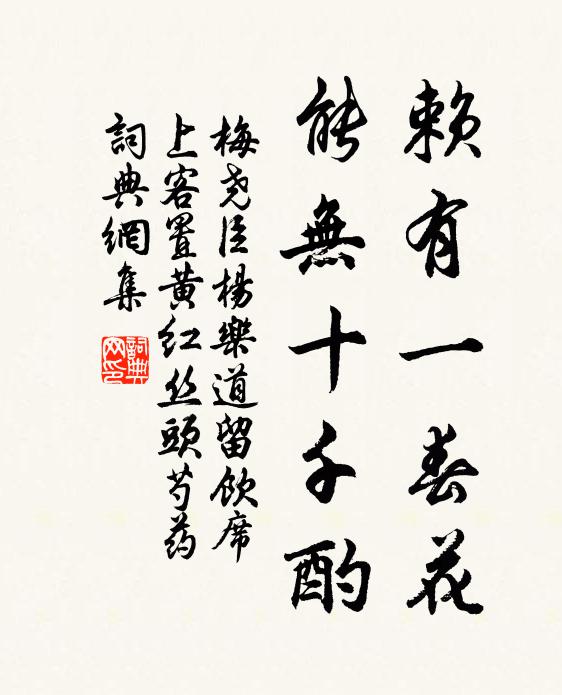 賴有一春花
能無十千酌
梅尧臣楊樂道留飲席
上客置黄红丝頭芍药
詞典網集
詞典网印